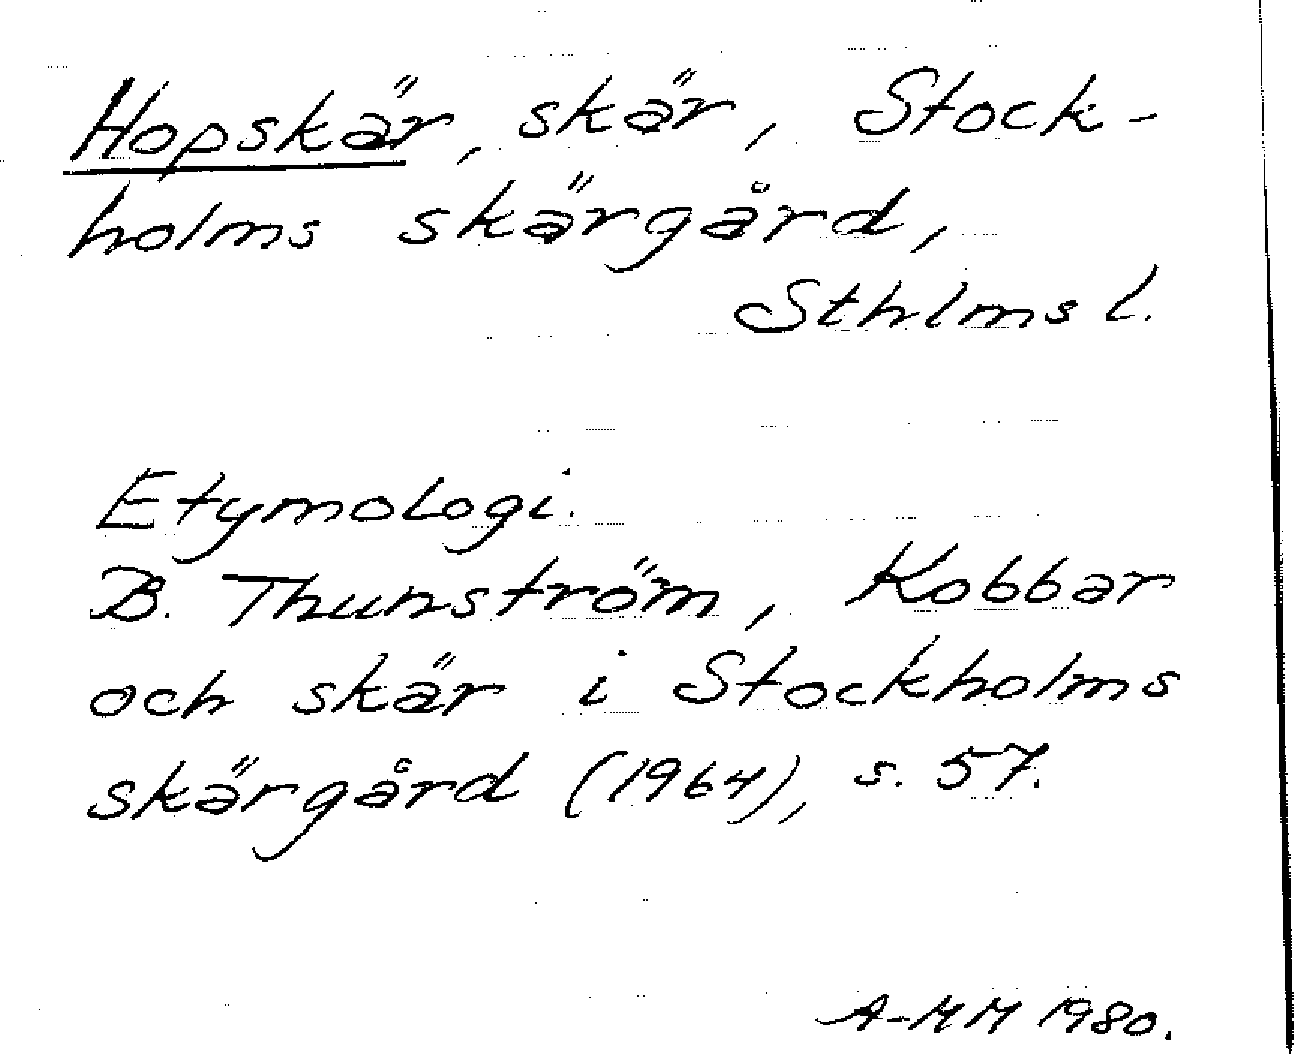 Hopskär, skär, Stock-
holms skärgård,
Sthlms l.
Etymologi.
B. Thunström, Kobbar
och skär i Stockholms
skärgård (1964), s. 57.
A-MM 1980.